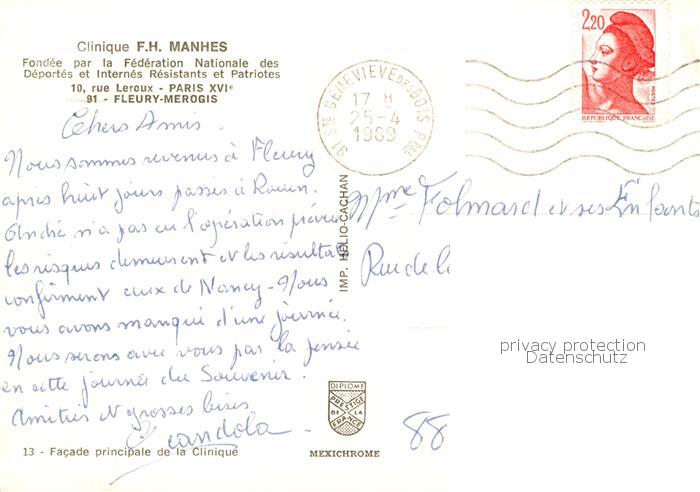 Clinique F.H. MANHES
Fondée par la Fédération Nationale des
Déportés et Internés Résistants et Patriotes
10, rue Leroux - PARIS XVIe
91 - FLEURY-MEROGIS
Chers Amis.
Nous sommes revenus à Fleury
après huit jours passés à Rouen.
André n'a pas eu l'opération prévue
les risques demeurent et les résultats
confirment ceux de Nancy - Nous
vous avons manqué d'une journée.
Nous serons avec vous par la pensée
en cette journée du Souvenir.
Amitiés et grosses bises
13 - Façade principale de la Clinique
IMP. HÉLIO-CACHAN
DIPLOME
PRESTIGE
DE LA
FRANCE
MEXICHROME
91 STE GENEVIEVE DES BOIS PPAL
17 H
25-4
1989
2,20
POSTES
REPUBLIQUE FRANÇAISE
Mme Folmard et ses Enfants
Rue de l
privacy protection
Datenschutz
88